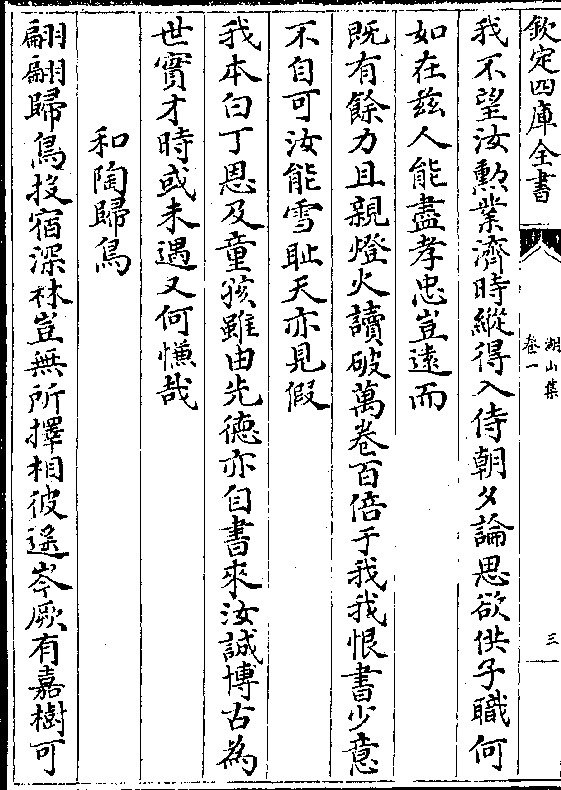 欽定四庫全書
湖山集
卷一
三
我不望汝勲業濟時縱得入侍朝夕論思欲供子職何
如在兹人能盡孝忠豈遠而
既有餘力且親燈火讀破萬卷百倍于我我恨書少意
不自可汝能雪耻天亦見假
我本白丁恩及童孩雖由先徳亦自書來汝誠博古為
世實才時或未遇又何慊哉
和陶歸鳥
翩翩歸鳥投宿深林豈無所擇相彼遥岑厥有嘉樹可